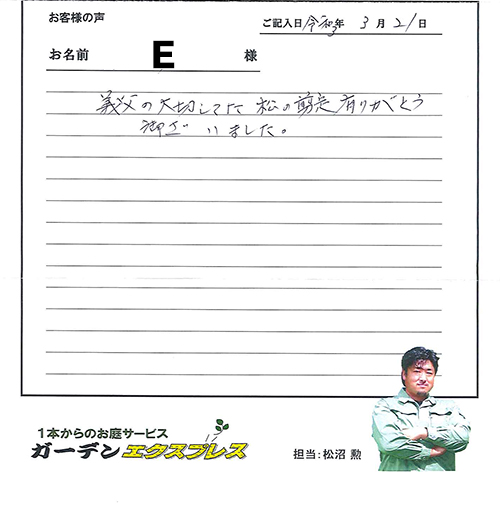 お客様の声
ご記入日 令和3年 3月 21日
お名前 E 様
義父の大切してた 松の剪定 有りがとう
御ざいました。
1本からのお庭サービス
ガーデンエクスプレス
担当:松沼 勲